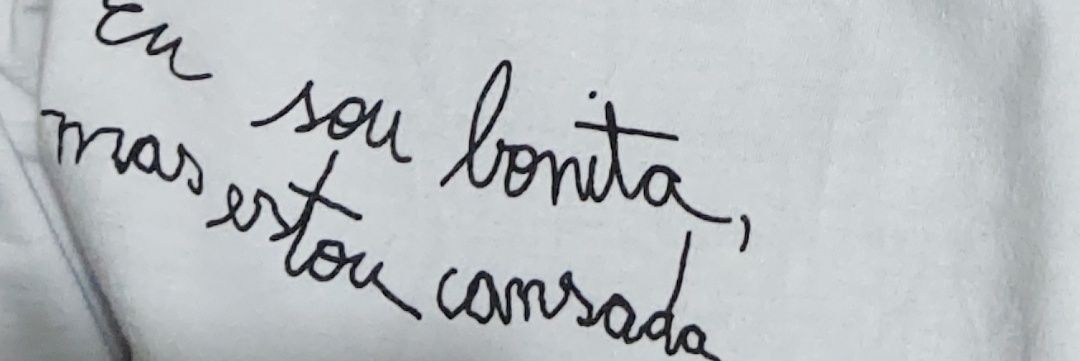 Eu sou bonita,
mas estou cansada